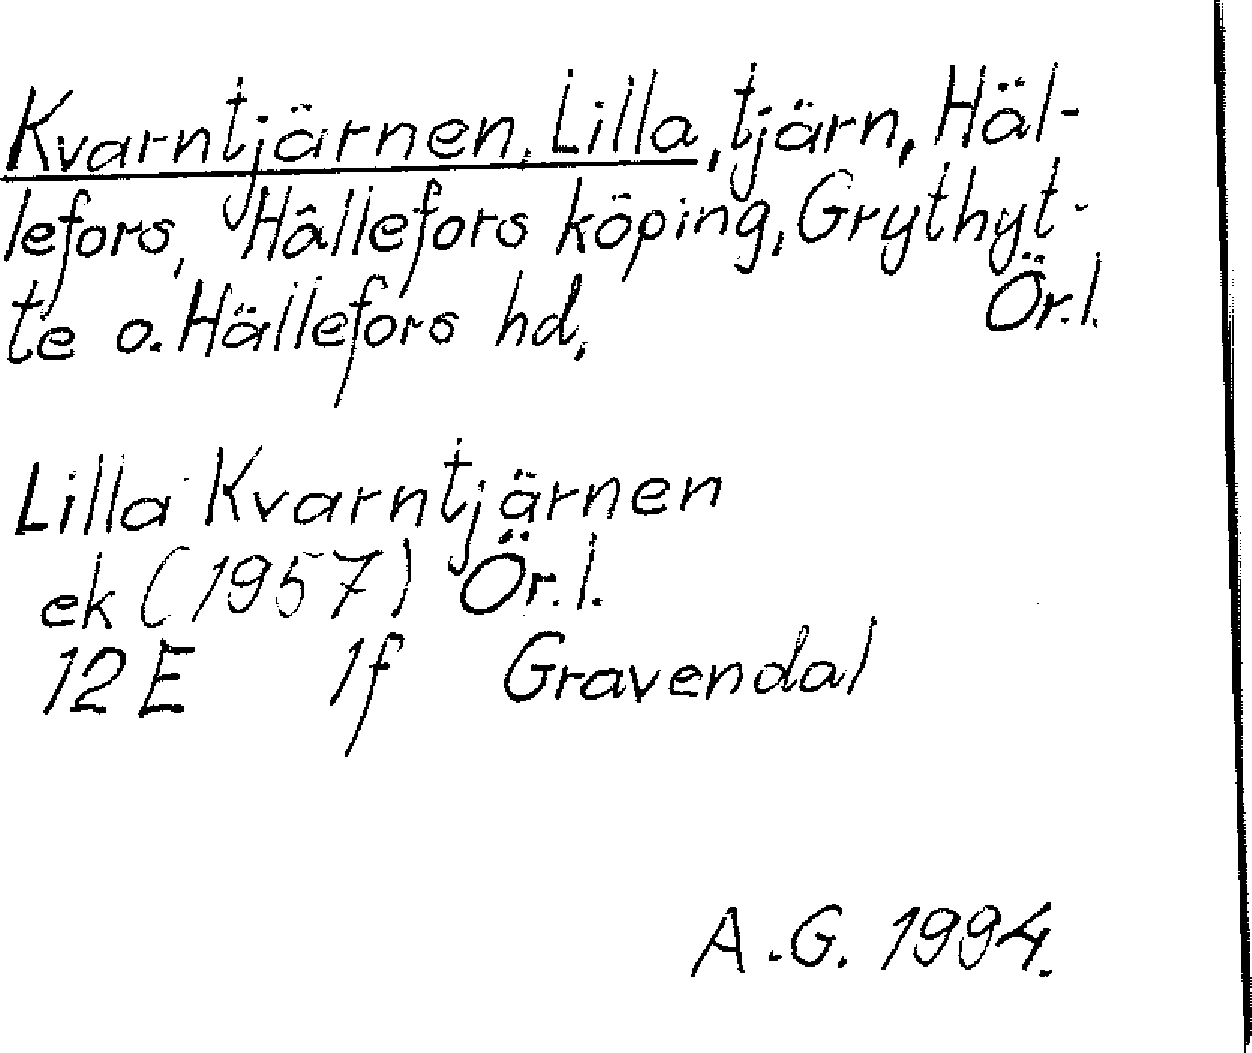 Kvarntjärnen, Lilla, tjärn, Häl-
lefors, Hällefors köping, Grythyt-
te o. Hällefors hd, Ör. l.
Lilla Kvarntjärnen
ek (1957) Ör. l.
12 E 1f Gravendal
A.G. 1994.